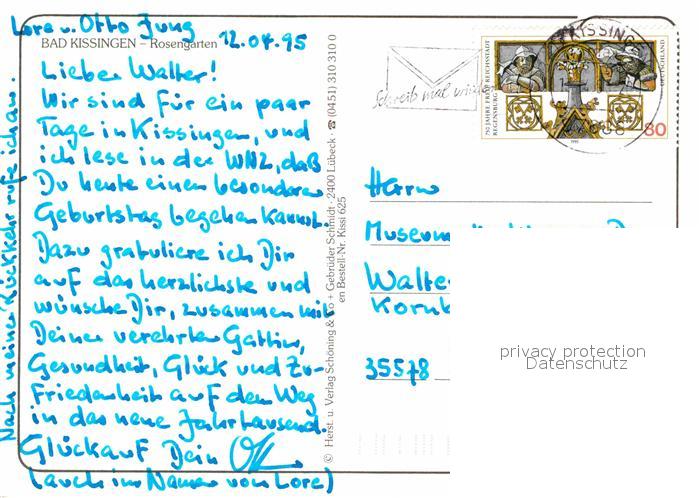 Lore u. Otto Jung
BAD KISSINGEN – Rosengarten
12.04.95
Lieber Walter!
Wir sind für ein paar
Tage in Kissingen, und
ich lese in der WNZ, daß
Du heute einen besonderen
Geburtstag begehen kannst.
Dazu gratuliere ich Dir
auf das herzlichste und
wünsche Dir, zusammen mit
Deiner verehrten Gattin,
Gesundheit, Glück und Zu-
friedenheit auf dem Weg
in das neue Jahrtausend.
Glückauf Dein
(auch im Namen von Lore)
Nach meiner Rückkehr rufe ich an.
© Herst. u. Verlag Schöning & Co + Gebrüder Schmidt · 2400 Lübeck · ☎ (0451) 310 310 0
en Bestell-Nr. Kissi 625
Schreib mal wieder
KISSING
750 JAHRE FREIE REICHSSTADT
REGENSBURG
DEUTSCHLAND
1995
80
Herrn
Museum
Walte
Kornb
35578
privacy protection
Datenschutz